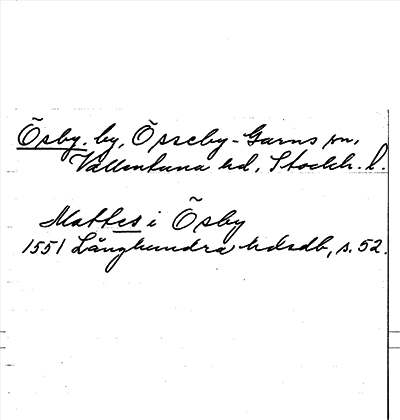 Ösby, by, Össeby-Garns sn,
Vallentuna hd, Stockh. l.
Mattes i Ösby
1551 Långhundra hdsdb, s. 52.